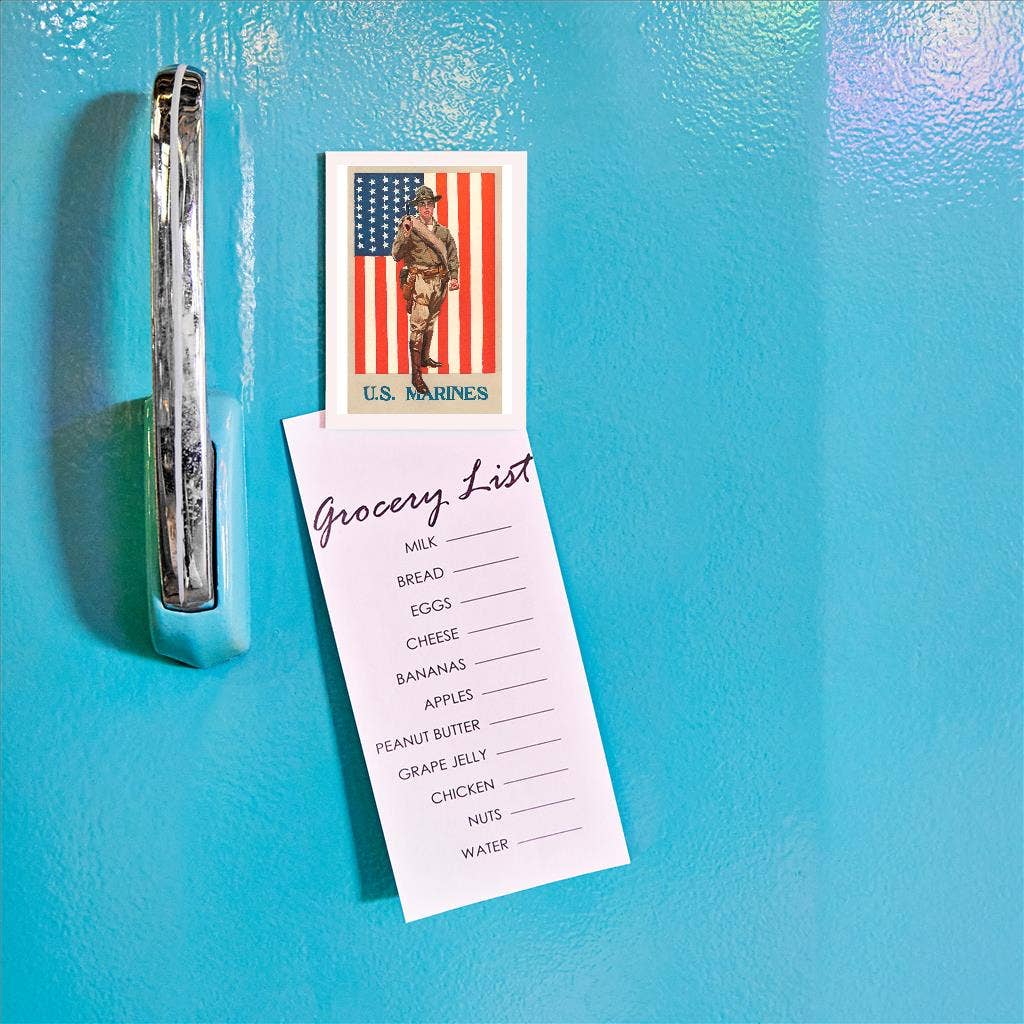 U.S. MARINES
Grocery List
MILK
BREAD
EGGS
CHEESE
BANANAS
APPLES
PEANUT BUTTER
GRAPE JELLY
CHICKEN
NUTS
WATER